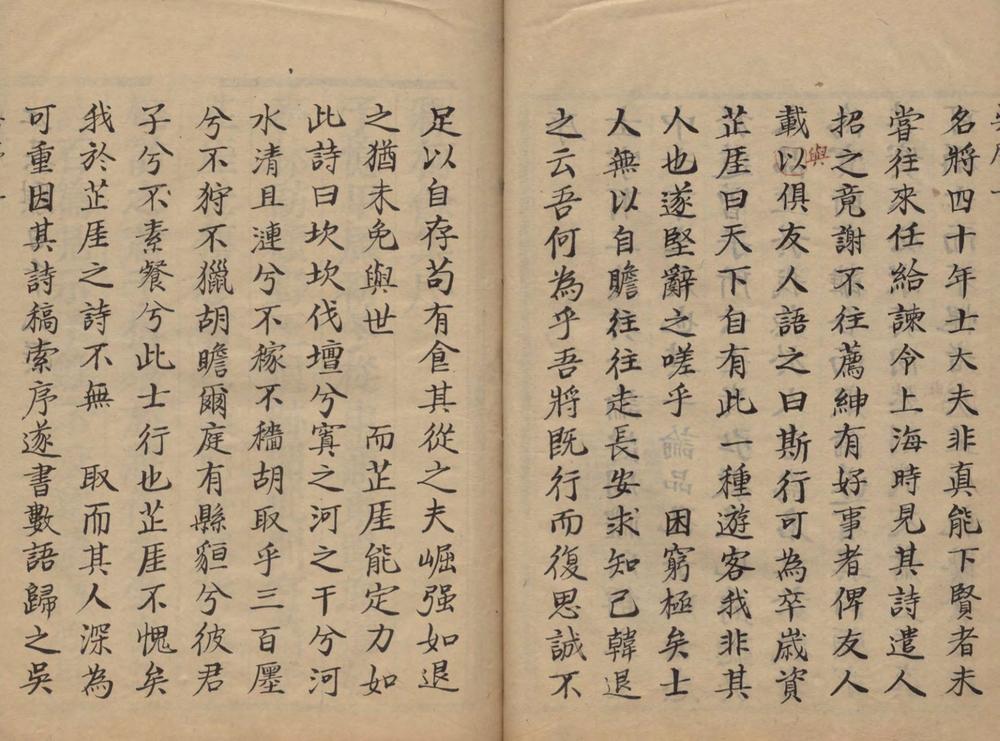 名將四十年士大夫非真能下賢者未
嘗往來任給諫令上海時見其詩遣人
招之竟謝不往薦紳有好事者俾友人
載以俱友人語之曰斯行可為卒歲資
與
芷厓曰天下自有此一種遊客我非其
人也遂堅辭之嗟乎 困窮極矣士
人無以自贍往往走長安求知己韓退
之云吾何為乎吾將既行而復思誠不
足以自存苟有食其從之夫崛强如退
之猶未免與世 而芷厓能定力如
此詩曰坎坎伐壇兮寘之河之干兮河
水清且漣兮不稼不穡胡取乎三百廛
兮不狩不獵胡瞻爾庭有縣貆兮彼君
子兮不素餐兮此士行也芷厓不愧矣
我於芷厓之詩不無 取而其人深為
可重因其詩稿索序遂書數語歸之吳